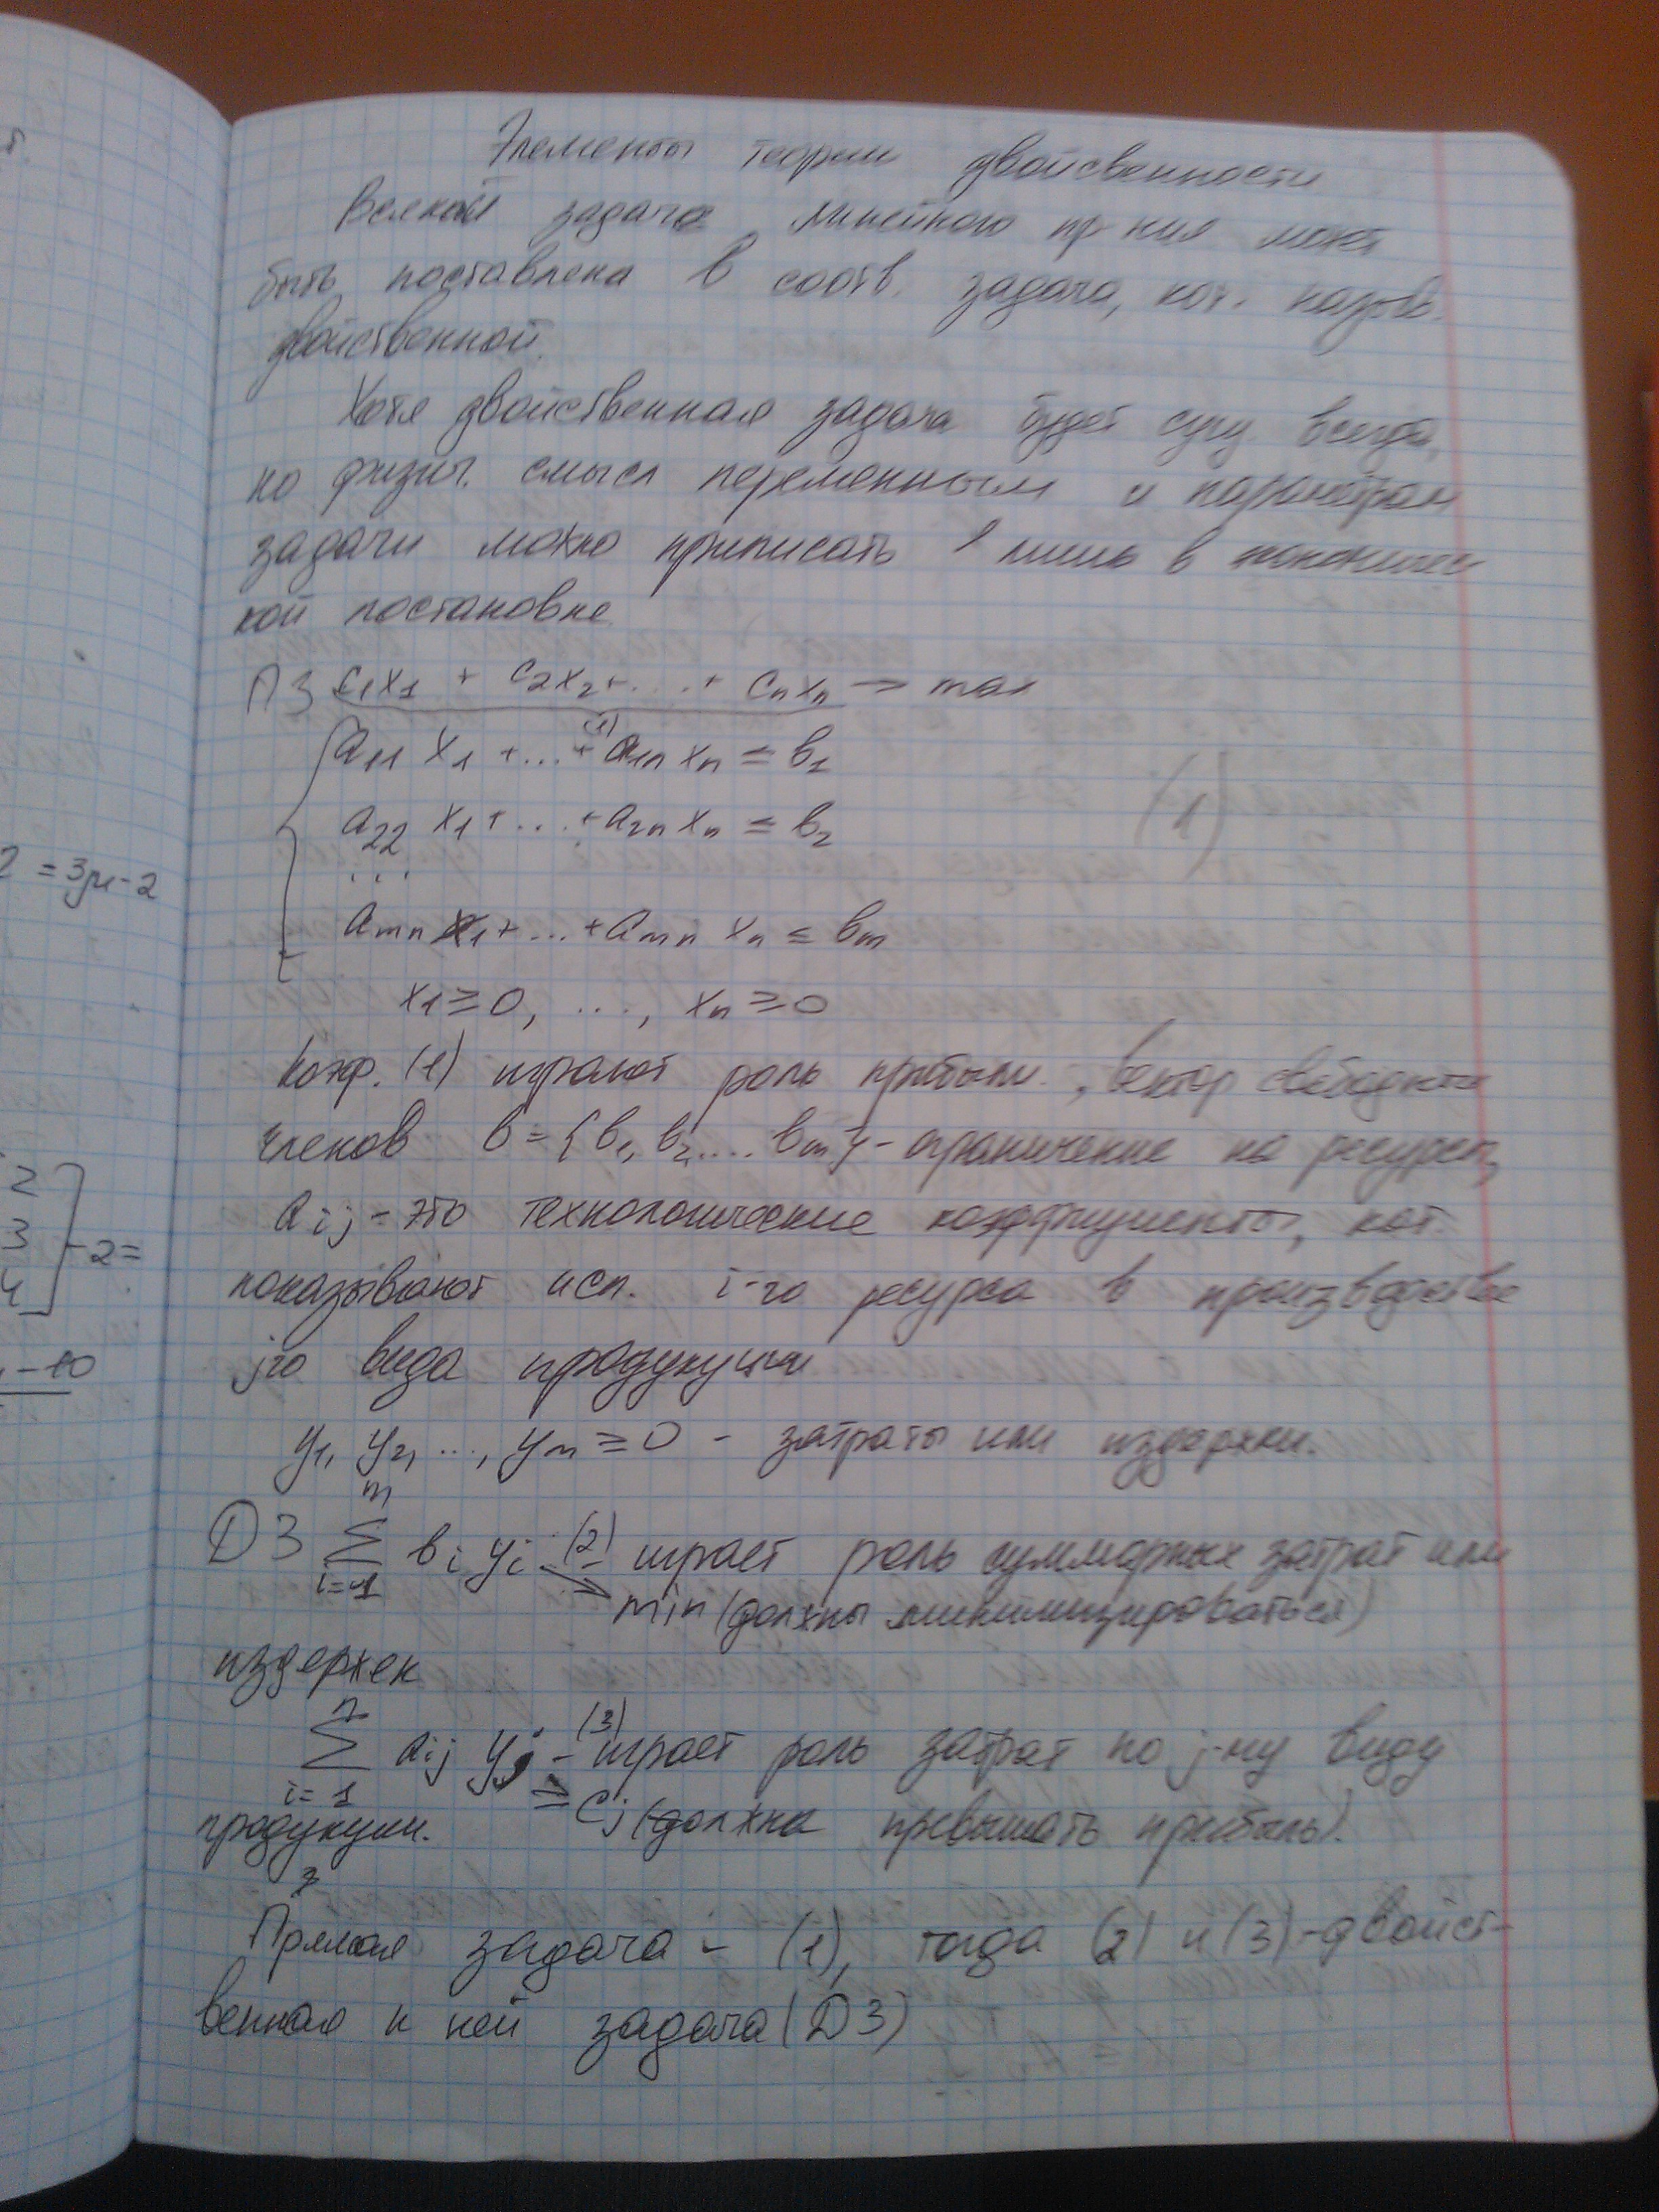 Элементы теории двойсвенности
Всякой задаче линейного пр-ния может
быть поставлена в соотв. задача, кот. назыв.
двойственной.
Хотя двойственная задача будет сущ всегда,
но физич. смысл переменным и параметрам
задачи можно приписать лишь в
кой постановке.
ПЗ c₁x₁ + c₂x₂ + ... + cₙxₙ → max
(1)
a₁₁ x₁ + ... + a₁ₙ xₙ ≤ b₁
a₂₂ x₁ + ... + a₂ₙ xₙ ≤ b₂ (1)
...
aₘₙ x₁ + ... + aₘₙ xₙ ≤ bₘ
x₁ ≥ 0, ..., xₙ ≥ 0
Коэф. (1) играют роль прибыли, вектор свободных
членов b = {b₁, b₂, .... bₘ} - ограничение на ресурсы,
aᵢⱼ - это технологические коэффициенты, кот.
показывают исп. i-го ресурса в производстве
jго вида продукции
y₁, y₂, ..., yₘ ≥ 0 - затраты или издержки.
ДЗ ∑ᵢ₌₁ᵐ bᵢ yᵢ (2) - играет роль суммарных затрат или
→ min (должны минимизироваться)
издержек
∑ᵢ₌₁ⁿ aᵢⱼ yⱼ (3) - играет роль затрат по j-му виду
≥ cⱼ (должна превышать прибыль).
продукции.
Прямая задача - (1), тогда (2) и (3) - двойст-
венная к ней задача (ДЗ)
2 = 3μ-2
2
3
4 ] -2=
-10